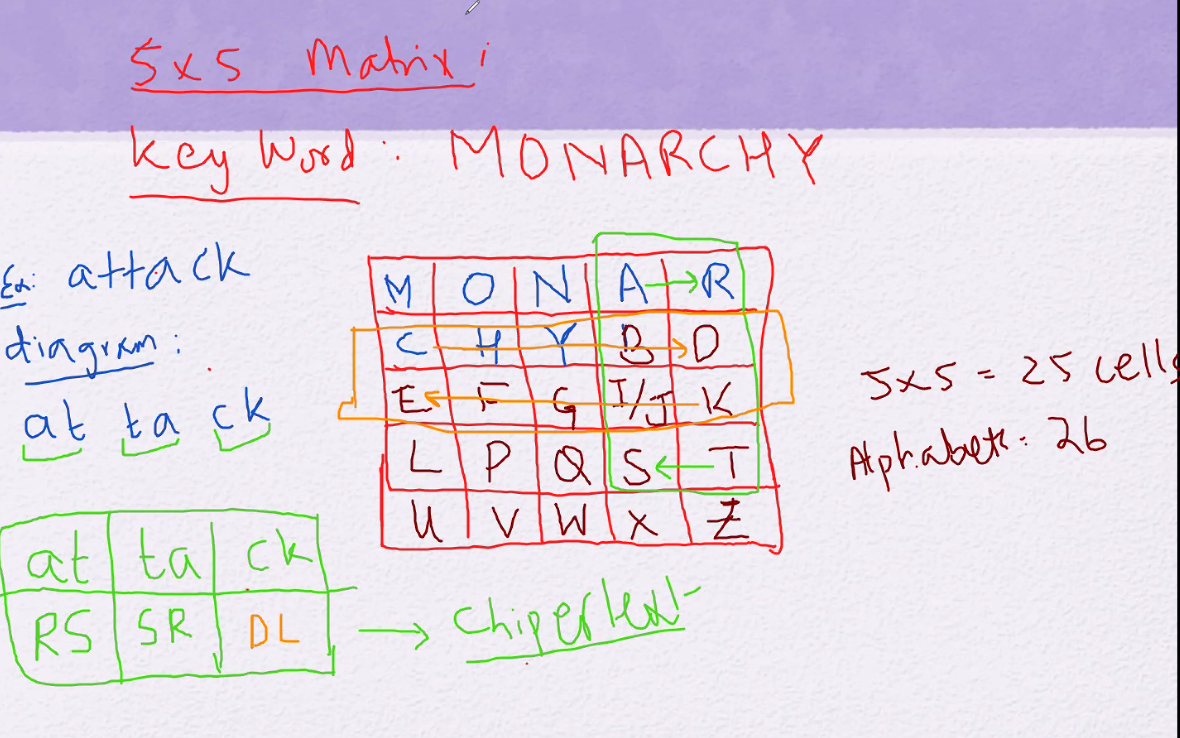 5x5 Matrix:
Key Word: MONARCHY
Ex: attack
diagram:
at ta ck
M O N A R
C H Y B D
E F G I/J K
L P Q S T
U V W X Z
5x5 = 25 cells
Alphabets: 26
at ta ck
RS SR DL
Chipertext